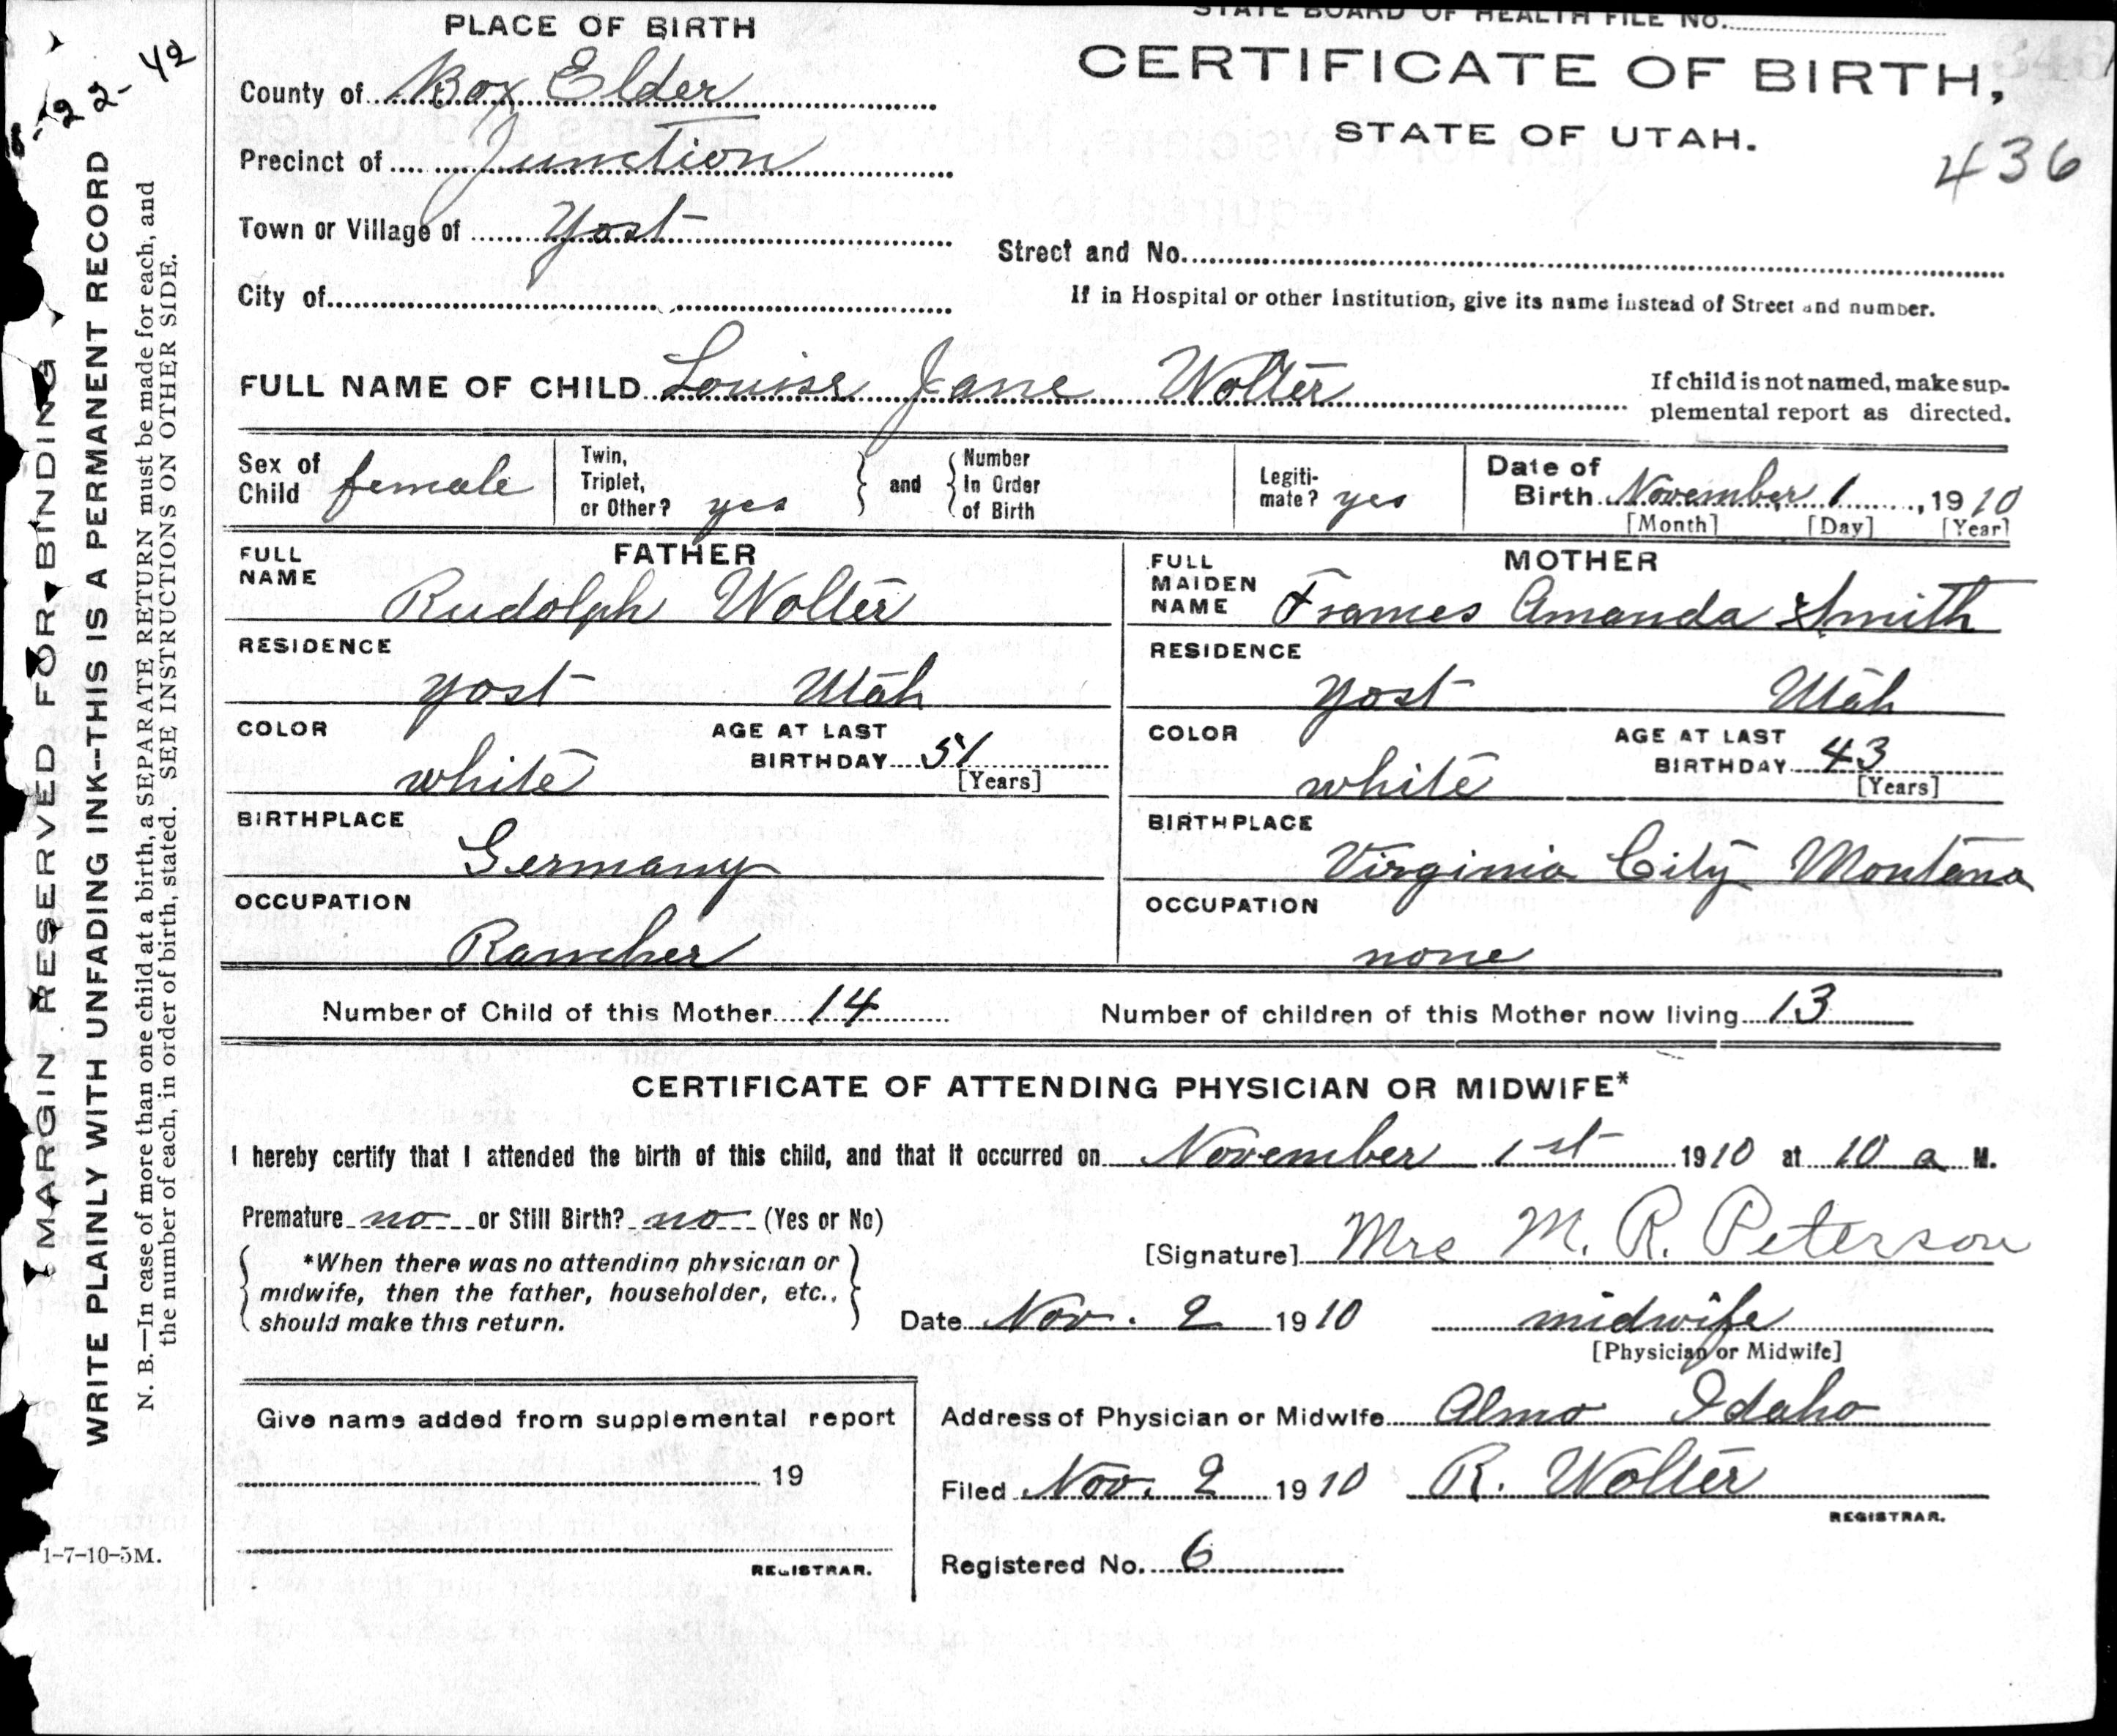 STATE BOARD OF HEALTH FILE NO.
PLACE OF BIRTH
CERTIFICATE OF BIRTH,
STATE OF UTAH.
436
County of Box Elder
Precinct of Junction
Town or Village of Yost
Street and No.
City of
If in Hospital or other Institution, give its name instead of Street and number.
FULL NAME OF CHILD Louise Jane Wolter
If child is not named, make sup-
plemental report as directed.
Sex of Child female
Twin, Triplet, or Other? yes
and
Number In Order of Birth
Legiti-mate? yes
Date of Birth November 1, 1910
[Month] [Day] [Year]
FATHER
FULL NAME Rudolph Wolter
RESIDENCE
Yost Utah
COLOR white
AGE AT LAST BIRTHDAY 51
[Years]
BIRTHPLACE
Germany
OCCUPATION
Rancher
MOTHER
FULL MAIDEN NAME Frances Amanda Smith
RESIDENCE
Yost Utah
COLOR white
AGE AT LAST BIRTHDAY 43
[Years]
BIRTHPLACE
Virginia City Montana
OCCUPATION
none
Number of Child of this Mother 14 Number of children of this Mother now living 13
CERTIFICATE OF ATTENDING PHYSICIAN OR MIDWIFE*
I hereby certify that I attended the birth of this child, and that it occurred on November 1st 1910 at 10 a M.
Premature no or Still Birth? no (Yes or No)
*When there was no attending physician or
midwife, then the father, householder, etc.,
should make this return.
[Signature] Mrs M. R. Peterson
Date Nov. 2 1910 midwife
[Physician or Midwife]
Give name added from supplemental report
19
REGISTRAR.
Address of Physician or Midwife Almo Idaho
Filed Nov. 2 1910 R. Wolter
REGISTRAR.
Registered No. 6
1-7-10-5M.
MARGIN RESERVED FOR BINDING
WRITE PLAINLY WITH UNFADING INK--THIS IS A PERMANENT RECORD
N. B.—In case of more than one child at a birth, a SEPARATE RETURN must be made for each, and
the number of each, in order of birth, stated. SEE INSTRUCTIONS ON OTHER SIDE.